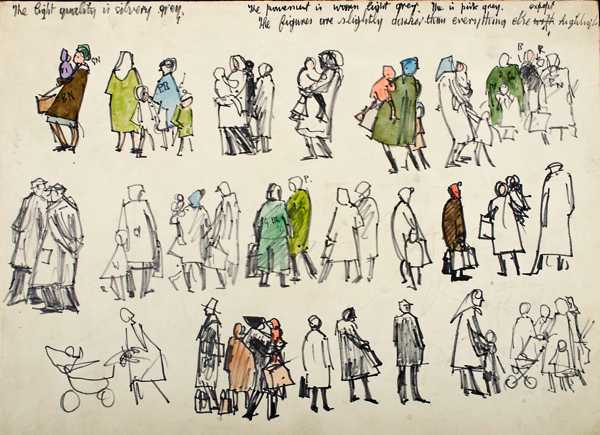 The light quality is silvery grey.
The pavement is warm light grey. The is pink grey. except
The figures are slightly darker than everything else highlight
BN
BN
PB